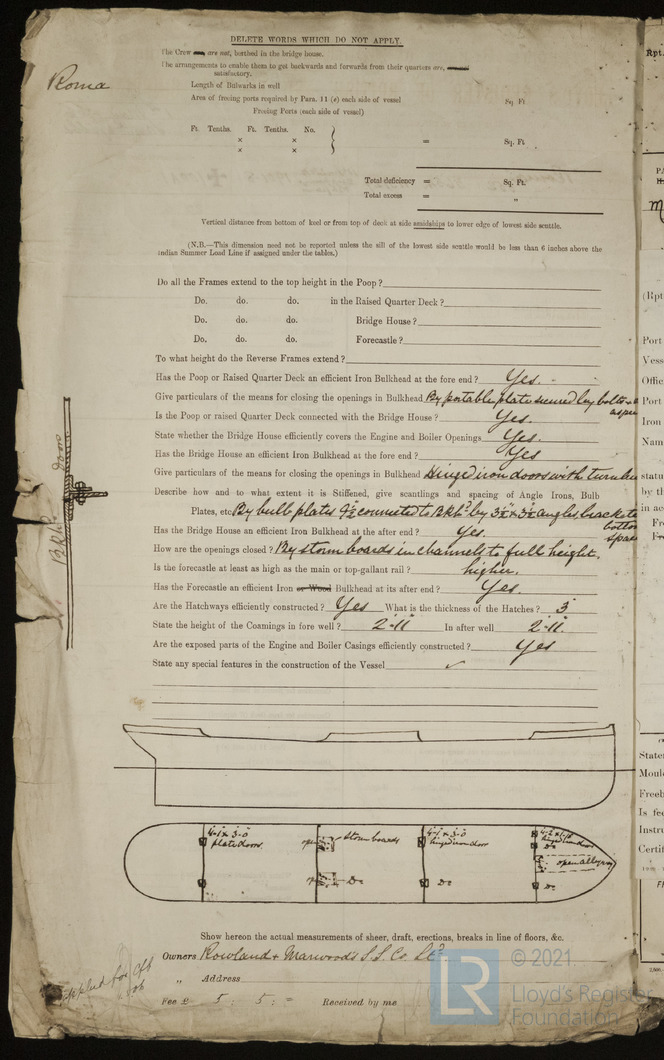 DELETE WORDS WHICH DO NOT APPLY.
Roma
The Crew are, are not, berthed in the bridge house.
The arrangements to enable them to get backwards and forwards from their quarters are,
satisfactory.
Length of Bulwarks in well
Area of freeing ports required by Para. 11 (e) each side of vessel Sq. Ft
Freeing Ports (each side of vessel)
Ft. Tenths. Ft. Tenths. No.
× × = Sq. Ft
× ×
Total deficiency = Sq. Ft.
Total excess = "
Vertical distance from bottom of keel or from top of deck at side amidships to lower edge of lowest side scuttle.
(N.B.—This dimension need not be reported unless the sill of the lowest side scuttle would be less than 6 inches above the
Indian Summer Load Line if assigned under the tables.)
Do all the Frames extend to the top height in the Poop?
Do. do. do. in the Raised Quarter Deck?
Do. do. do. Bridge House?
Do. do. do. Forecastle?
To what height do the Reverse Frames extend?
Has the Poop or Raised Quarter Deck an efficient Iron Bulkhead at the fore end? Yes.
Give particulars of the means for closing the openings in Bulkhead By portable plate secured by bolts
Is the Poop or raised Quarter Deck connected with the Bridge House? Yes.
State whether the Bridge House efficiently covers the Engine and Boiler Openings Yes.
Has the Bridge House an efficient Iron Bulkhead at the fore end? Yes
Give particulars of the means for closing the openings in Bulkhead Hinged iron doors with
Describe how and to what extent it is Stiffened, give scantlings and spacing of Angle Irons, Bulb
Plates, etc. By bulb plates 9½" connected to Bkhd by 3½" x 3½" angles brackets
Has the Bridge House an efficient Iron Bulkhead at the after end? Yes.
How are the openings closed? By storm boards in channels to full height.
Is the forecastle at least as high as the main or top-gallant rail? higher.
Has the Forecastle an efficient Iron or Wood Bulkhead at its after end? Yes.
Are the Hatchways efficiently constructed? Yes What is the thickness of the Hatches? 3"
State the height of the Coamings in fore well? 2-11 In after well 2-11.
Are the exposed parts of the Engine and Boiler Casings efficiently constructed? Yes
State any special features in the construction of the Vessel ✓
Bkhd door
4-1 x 3-0
plate doors.
Storm boards
Do
4-1 x 3-0
hinged iron door
Do
hinged iron door
Do
open alleyway
Do
Show hereon the actual measurements of sheer, draft, erections, breaks in line of floors, &c.
Owners Rowland & Marwoods S.S. Co Ltd
" Address
Fee £ 5 : 5 : = Received by me
applied for
© 2021.
LR
Lloyd's Register
Foundation
Rpt.
(Rpt
Port
Vess
Offic
Port
Iron
Nam
statu
by th
in ac
Fr
State
Moul
Freeb
Is fe
Instru
Certif